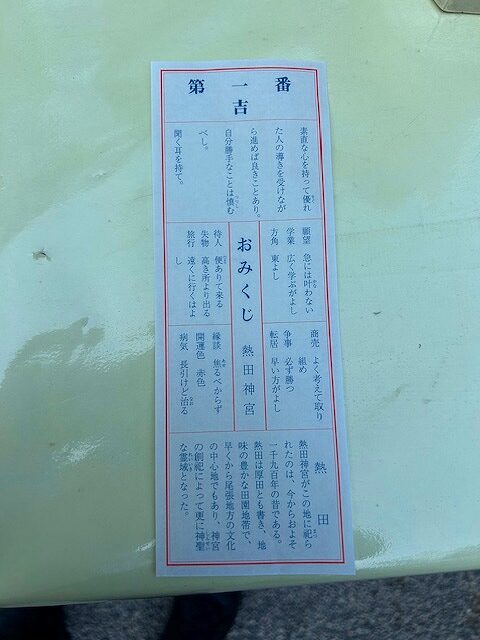 第一番
吉
素直な心を持って優れ
た人の導きを受けなが
ら進めば良きことあり。
自分勝手なことは慎む
べし。
聞く耳を持て。
願望 急には叶わない
学業 広く学ぶがよし
方角 東よし
おみくじ 熱田神宮
待人 便ありて来る
失物 高き所より出る
旅行 遠くに行くはよ
し
商売 よく考えて取り
組め
争事 必ず勝つ
転居 早い方がよし
縁談 焦るべからず
開運色 赤色
病気 長引けど治る
熱田
熱田神宮がこの地に祀ら
れたのは、今からおよそ
一千九百年の昔である。
熱田は厚田とも書き、地
味の豊かな田園地帯で、
早くから尾張地方の文化
の中心地でもあり、神宮
の創祀によって更に神聖
な霊域となった。